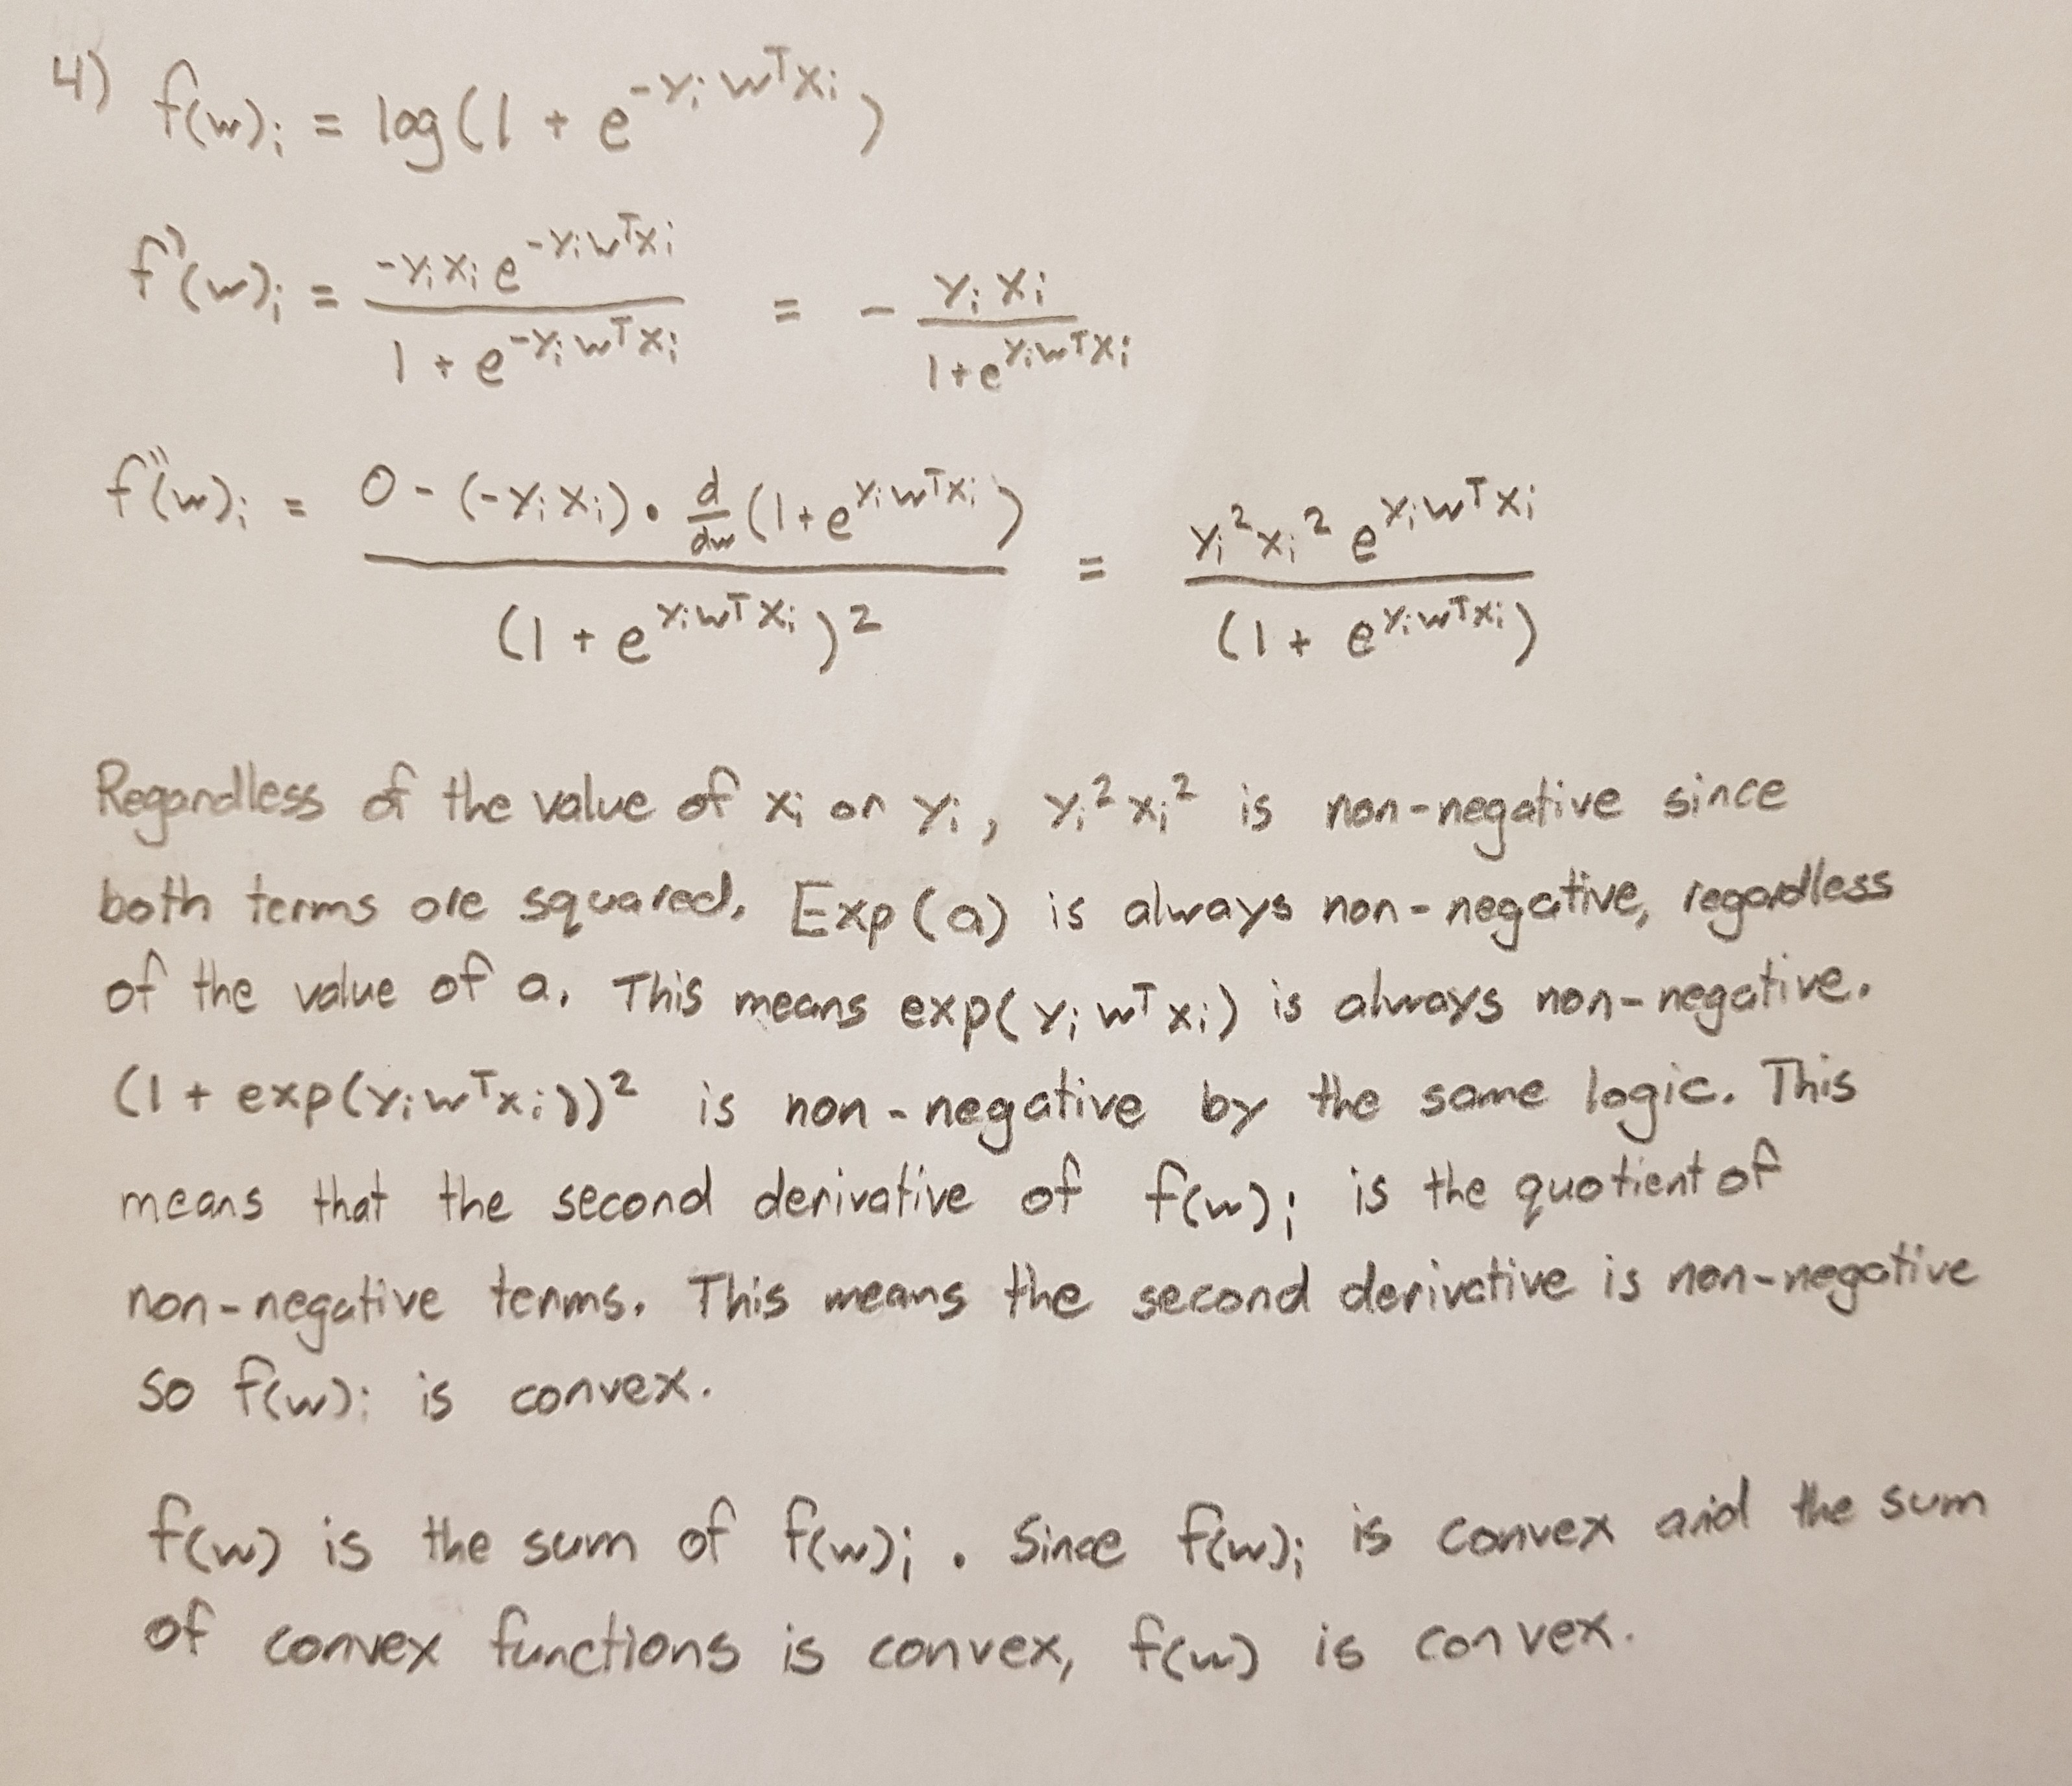 4) f(w)ᵢ = log(1 + e^{-yᵢ wᵀxᵢ})
f'(w)ᵢ = \frac{-yᵢxᵢ e^{-yᵢwᵀxᵢ}}{1 + e^{-yᵢwᵀxᵢ}} = - \frac{yᵢ xᵢ}{1+e^{yᵢwᵀxᵢ}}
f''(w)ᵢ = \frac{0 - (-yᵢxᵢ) · \frac{d}{dw}(1+e^{yᵢwᵀxᵢ})}{(1 + e^{yᵢwᵀxᵢ})²} = \frac{yᵢ²xᵢ² e^{yᵢwᵀxᵢ}}{(1 + e^{yᵢwᵀxᵢ})}
Regardless of the value of xᵢ or yᵢ, yᵢ²xᵢ² is non-negative since
both terms are squared. Exp(a) is always non-negative, regardless
of the value of a. This means exp(yᵢ wᵀxᵢ) is always non-negative.
(1 + exp(yᵢwᵀxᵢ))² is non-negative by the same logic. This
means that the second derivative of f(w)ᵢ is the quotient of
non-negative terms. This means the second derivative is non-negative
so f(w)ᵢ is convex.
f(w) is the sum of f(w)ᵢ. Since f(w)ᵢ is convex and the sum
of convex functions is convex, f(w) is convex.